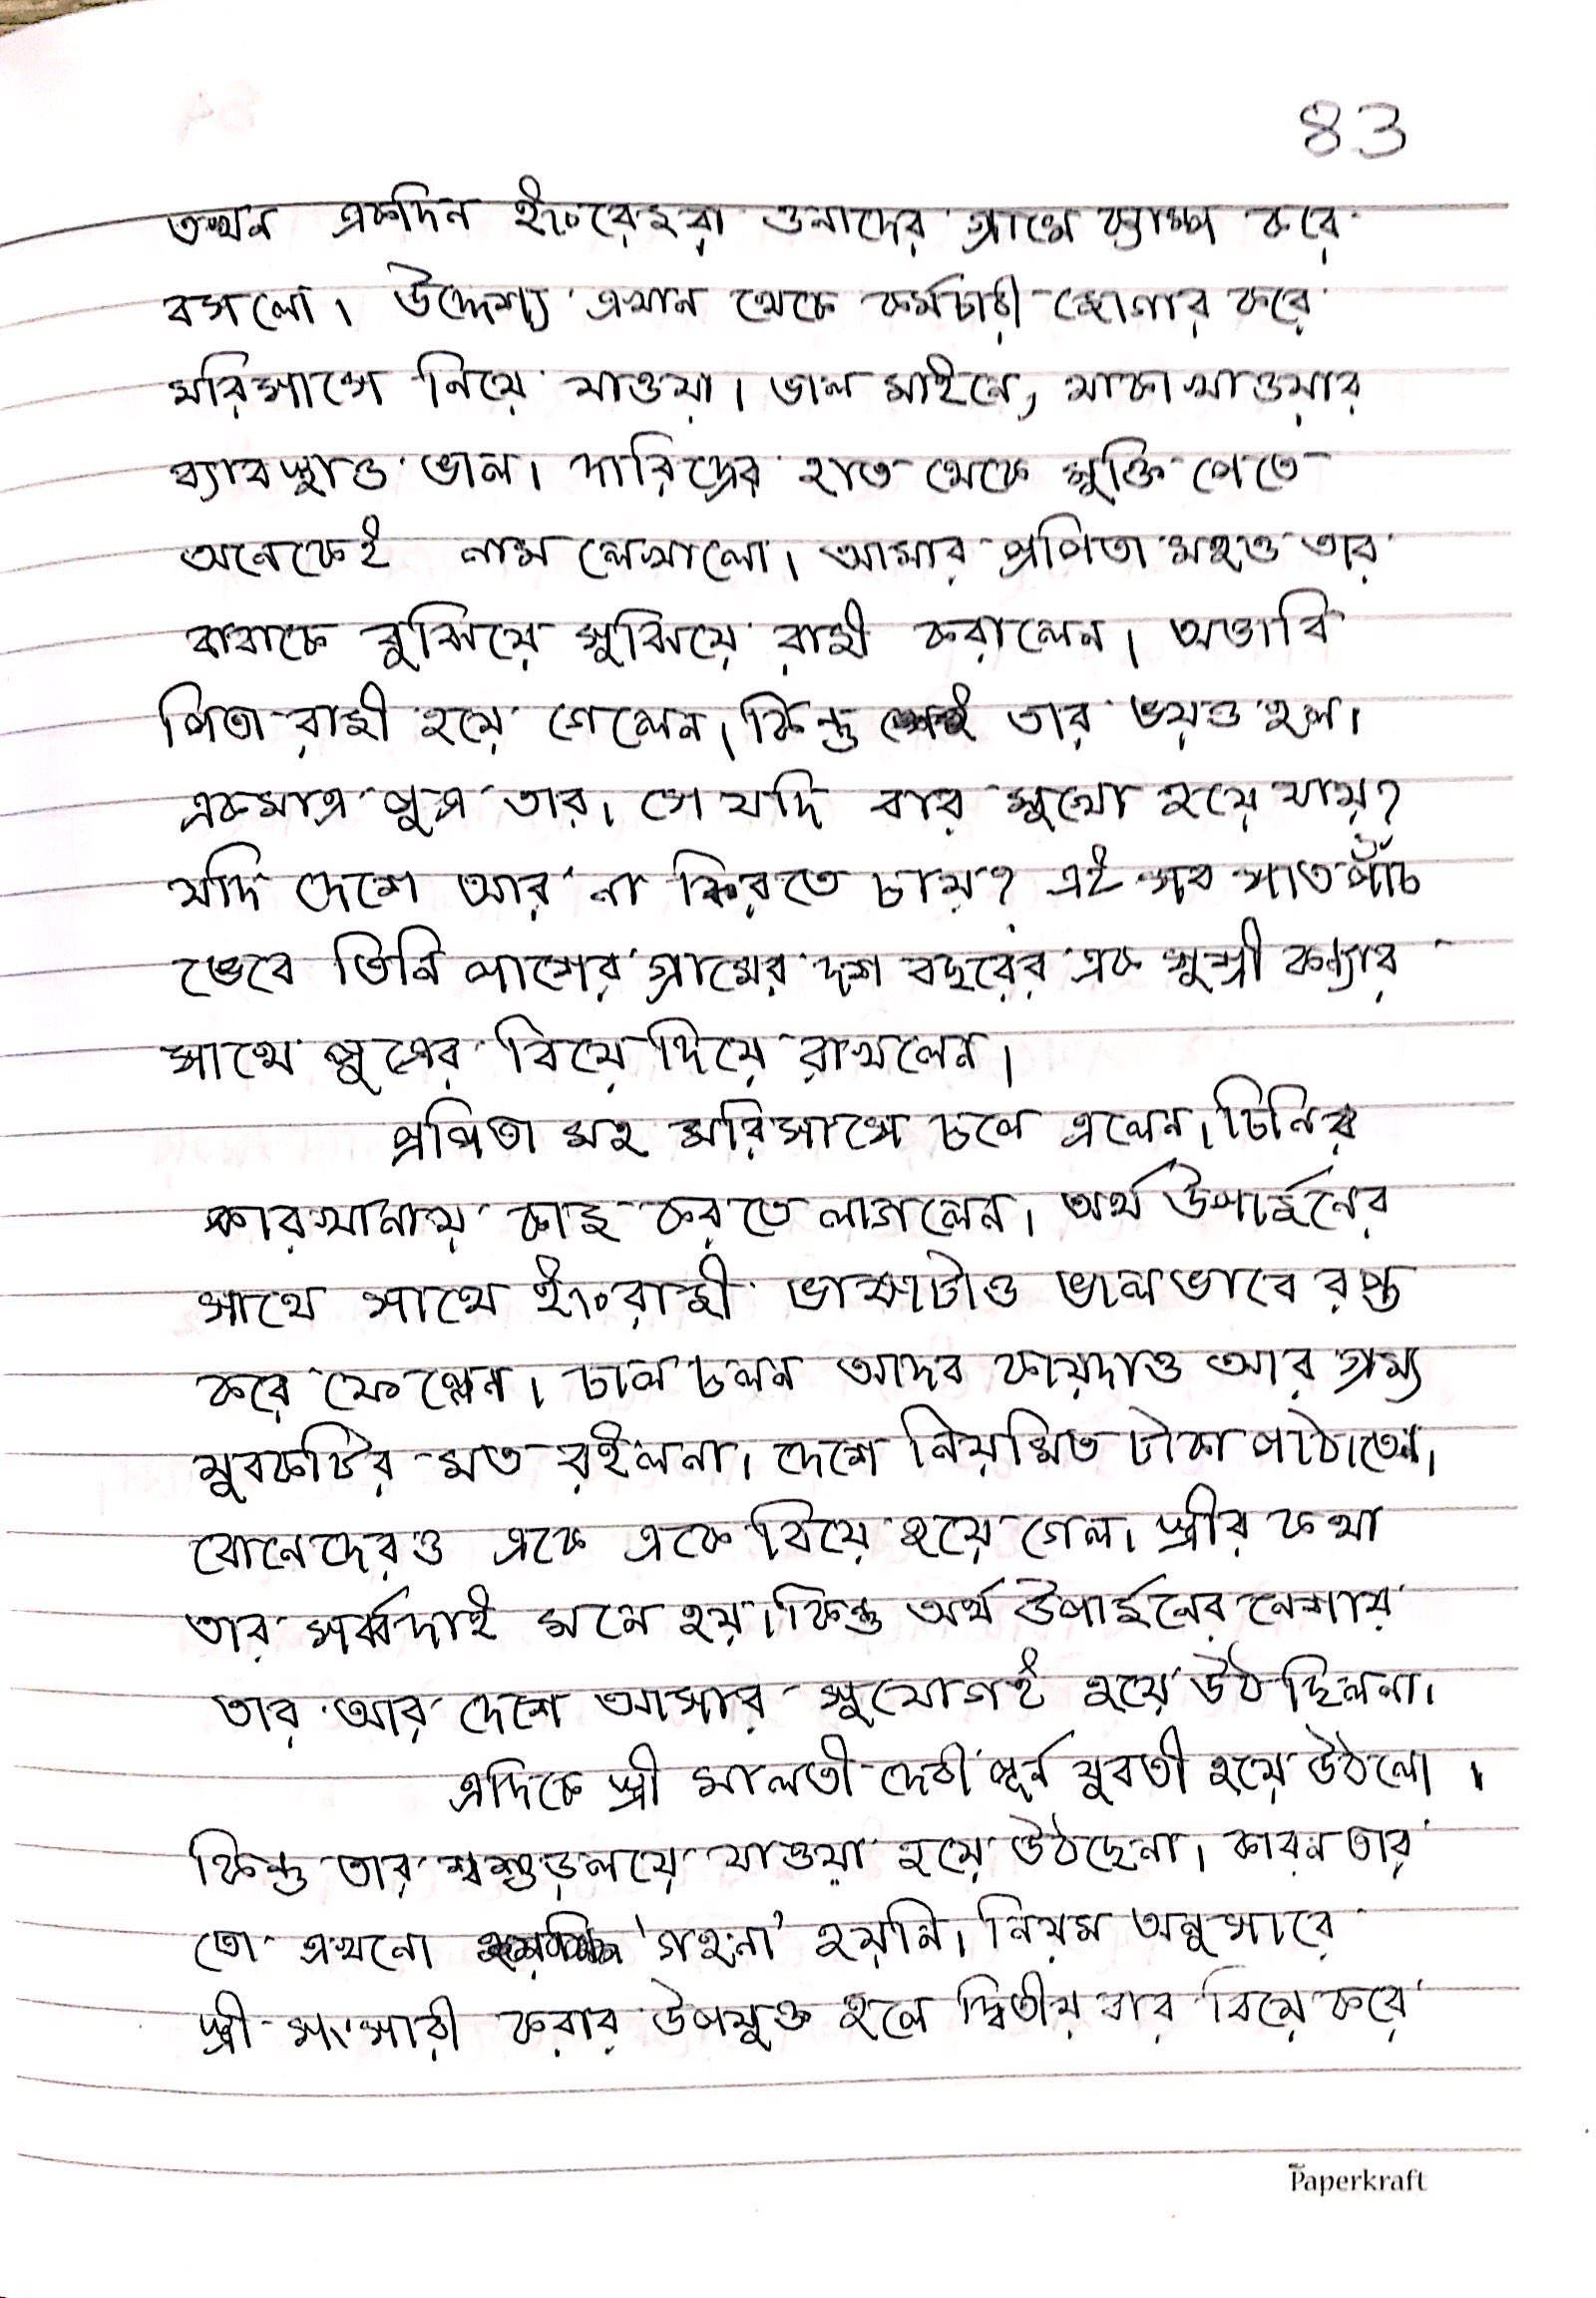 83
তখন একদিন ইংরেজরা ওনাদের গ্রামে ক্যাম্প করে
বসলো। উদ্দেশ্য এখান থেকে কর্মচারী জোগার করে
মরিসাসে নিয়ে যাওয়া। ভাল মাইনে, থাকা খাওয়ার
ব্যাবস্থাও ভাল। দারিদ্রের হাত থেকে মুক্তি পেতে
অনেকেই নাম লেখালো। আমার প্রপিতা মহও তার
বাবাকে বুঝিয়ে সুঝিয়ে রাজী করালেন। অভাবি
পিতা রাজী হয়ে গেলেন। কিন্তু তার ভয়ও হল।
একমাত্র পুত্র তার। সে যদি বার মুখো হয়ে যায়?
যদি দেশে আর না ফিরতে চায়? এই সব সাত পাঁচ
ভেবে তিনি পাশের গ্রামের দশ বছরের এক সুশ্রী কন্যার
সাথে পুত্রের বিয়ে দিয়ে রাখলেন।
প্রপিতা মহ মরিসাসে চলে এলেন। চিনির
কারখানায় কাজ করতে লাগলেন। অর্থ উপার্জনের
সাথে সাথে ইংরাজী ভাষাটাও ভালভাবে রপ্ত
করে ফেল্লেন। চাল চলন আদব কায়দাও আর গ্রাম্য
যুবকটির মত রইলনা। দেশে নিয়মিত টাকা পাঠাতেন।
বোনেদেরও একে একে বিয়ে হয়ে গেল। স্ত্রীর কথা
তার সর্ব্বদাই মনে হয়। কিন্তু অর্থ উপার্জনের নেশায়
তার আর দেশে আসার সুযোগই হয়ে উঠছিলনা।
এদিকে স্ত্রী মালতী দেবী পূর্ন যুবতী হয়ে উঠলো।
কিন্তু তার শ্বশুড়ালয়ে যাওয়া হয়ে উঠছেনা। কারন তার
তো এখনো 'গহনা' হয়নি। নিয়ম অনুসারে
স্ত্রী সংসারী করার উপযুক্ত হলে দ্বিতীয় বার বিয়ে করে
Paperkraft